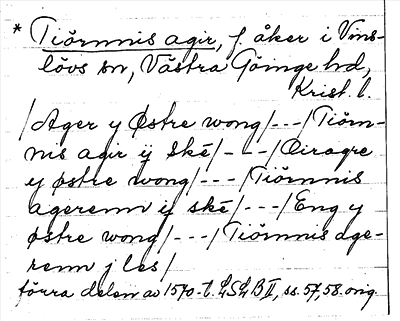 * Tiörnnis agir, f. åker i Vins-
lövs sn, Västra Göinge hd,
Krist. l.
/Ager y Østre wong/---/Tiörn-
nis agir ij Ské/---/Ciragre
y østre wong/---/Tiörnnis
agerenn ij ské/---/Eng y
østre wong/---/Tiörnnis age-
renn j les/
förra delen av 1570-t. LSLB II, ss. 57, 58. orig.